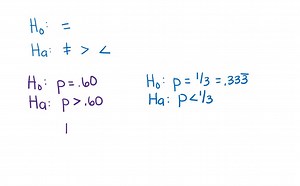 H₀: =
Ha: ≠ > <
H₀: p = .60
Ha: p > .60
|
H₀: p = 1/3 = .333̅
Ha: p < 1/3